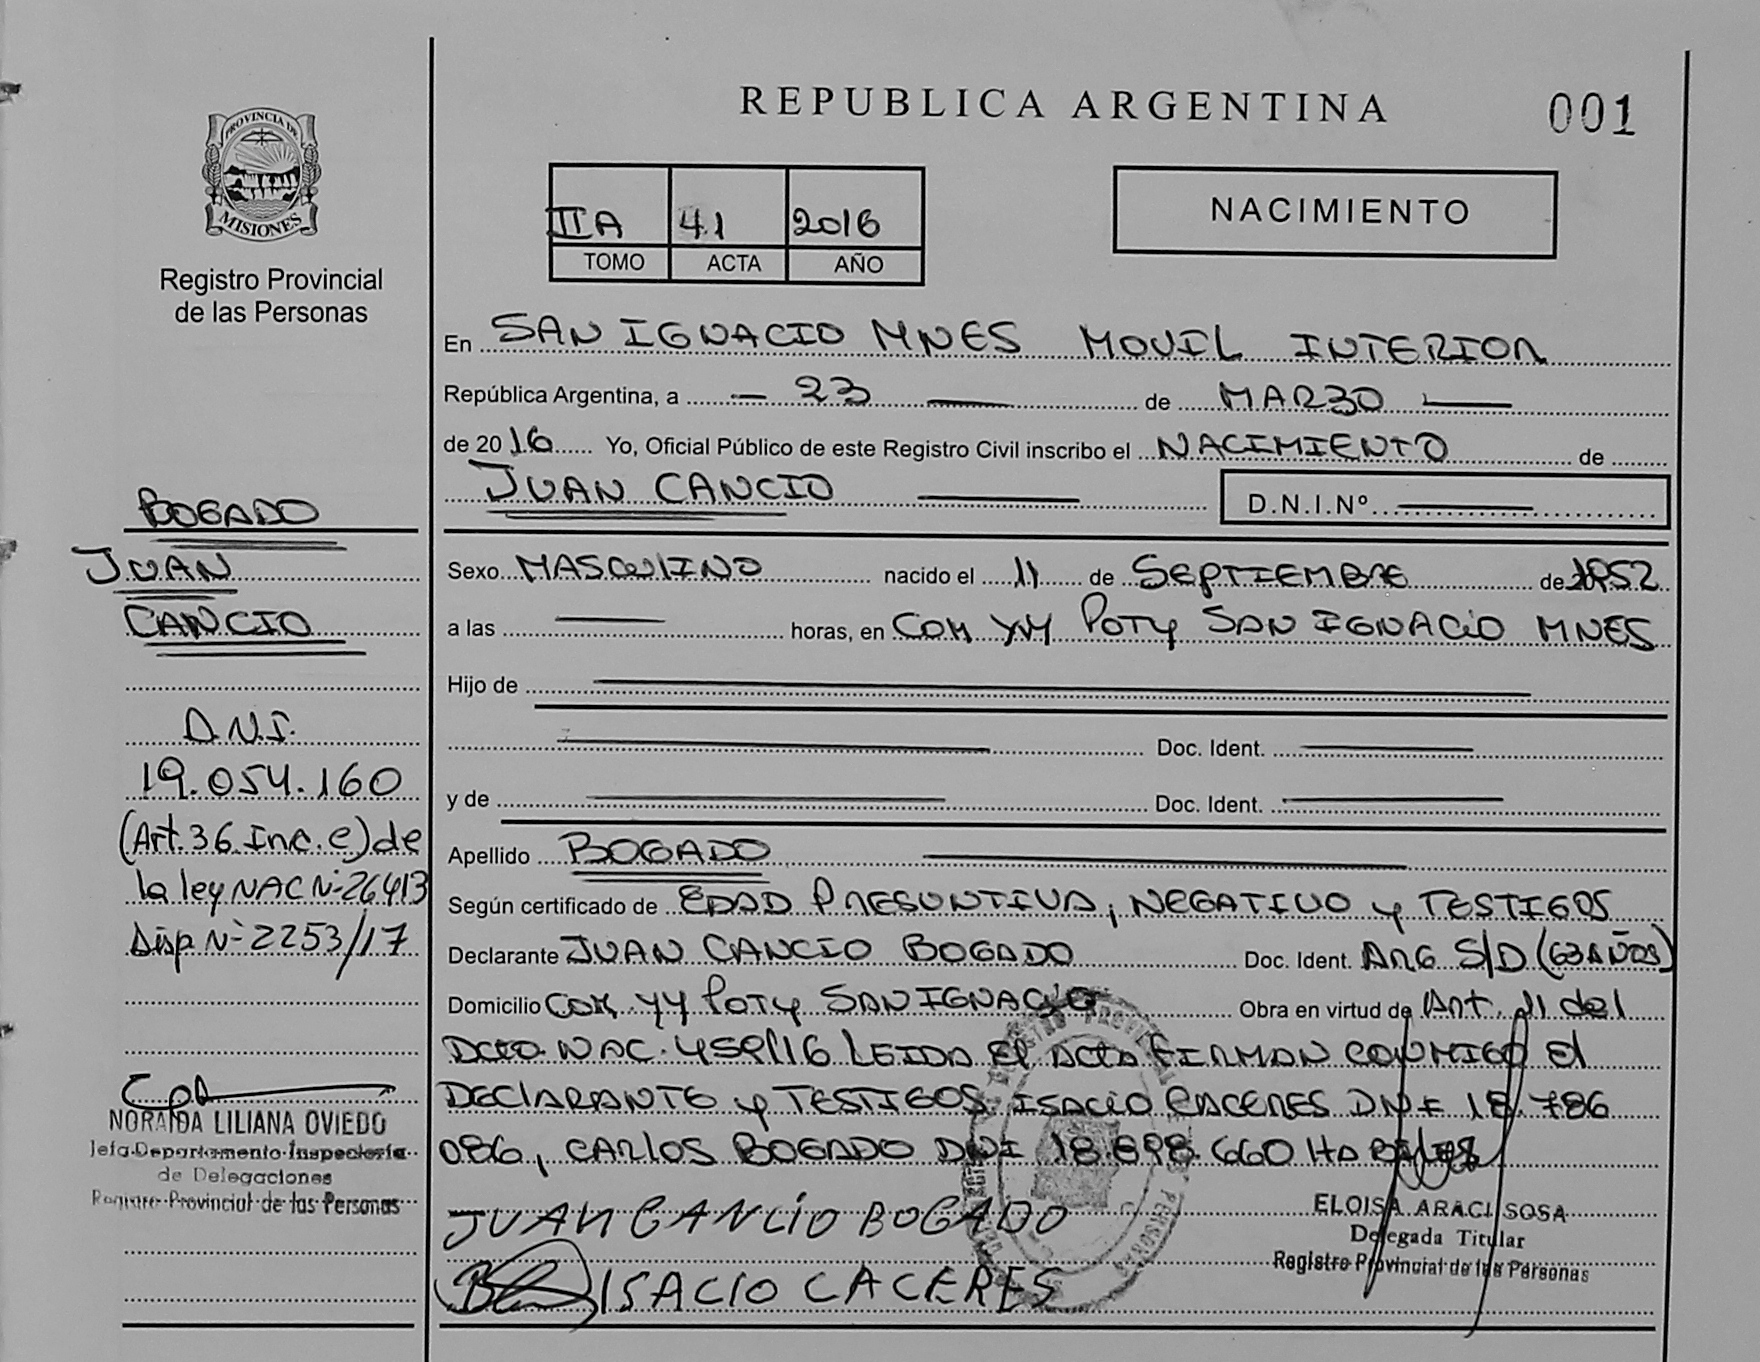 REPUBLICA ARGENTINA
001
PROVINCIA DE
MISIONES
Registro Provincial
de las Personas
IIA 41 2016
TOMO ACTA AÑO
NACIMIENTO
En SAN IGNACIO MNES MOVIL INTERIOR
República Argentina, a - 23 de MARZO
de 2016 Yo, Oficial Público de este Registro Civil inscribo el NACIMIENTO de
JUAN CANCIO D.N.I.Nº
Sexo MASCULINO nacido el 11 de SEPTIEMBRE de 1952
a las horas, en COM YVY POTY SAN IGNACIO MNES
Hijo de
Doc. Ident.
y de Doc. Ident.
Apellido BOGADO
Según certificado de EDAD PRESUNTIVA, NEGATIVO y TESTIGOS
Declarante JUAN CANCIO BOGADO Doc. Ident. ARG S/D (63 AÑOS)
Domicilio COM YY POTY SAN IGNACIO Obra en virtud de Art. 11 del
Dcto NAC. 459/16 LEIDA El Acta FIRMAN CONMIGO El
DECLARANTE y TESTIGOS ISACIO CACERES DNI 18.786
086, CARLOS BOGADO DNI 18.898.660 HABILES
JUAN CANCIO BOGADO
ISACIO CACERES
ELOISA ARACI SOSA
Delegada Titular
Registro Provincial de las Personas
BOGADO
JUAN
CANCIO
D.N.I.
19.054.160
(Art.36.Inc.e) de
la ley NAC Nº 26413
Disp Nº 2253/17
NORAIDA LILIANA OVIEDO
Jefa Departamento Inspectoría
de Delegaciones
Registro Provincial de las Personas